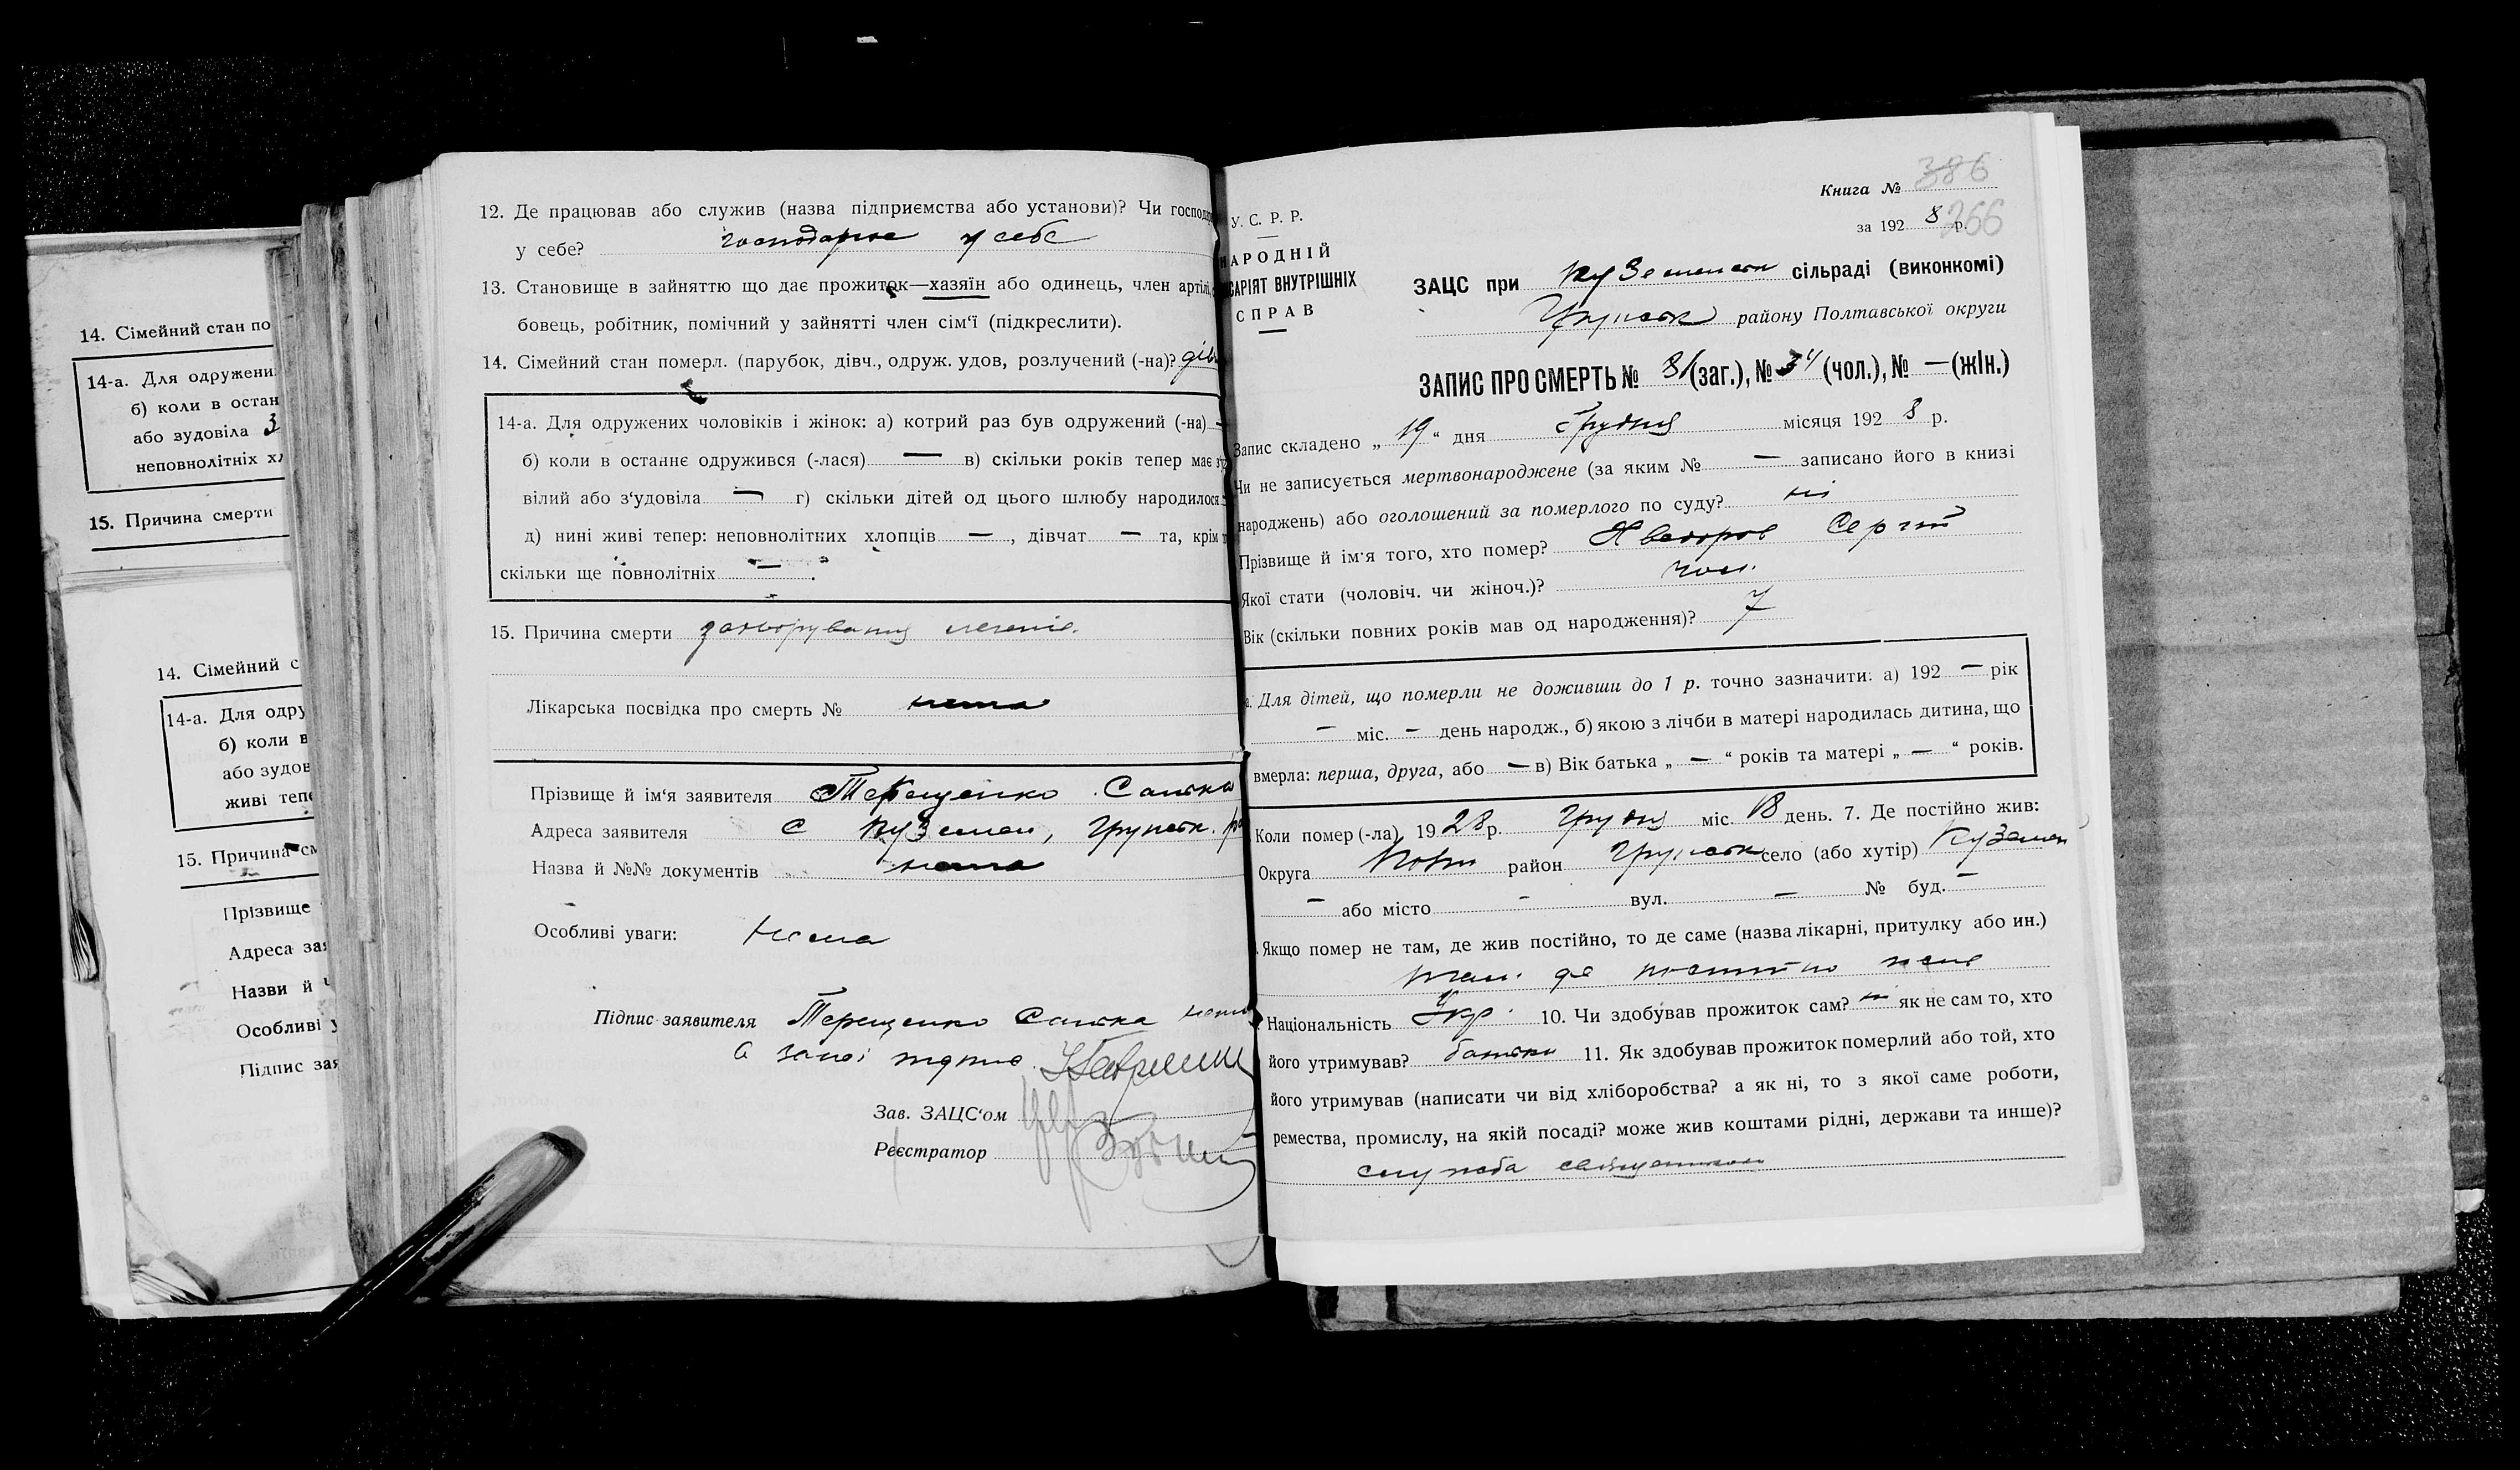 14. Сімейний стан по
14-а. Для одружени
б) коли в остан
або зудовіла 3
неповнолітніх хл
15. Причина смерти
14. Сімейний с
14-а. Для одру
б) коли в
або зудов
живі теп
15. Причина см
Прізвище
Адреса зая
Назви й ч
Особливі у
Підпис зая
12. Де працював або служив (назва підприємства або установи)? Чи господар
у себе? господарює у себе
13. Становище в зайняттю що дає прожиток—хазяїн або одинець, член артілі,
бовець, робітник, помічний у зайнятті член сім'ї (підкреслити).
14. Сімейний стан померл. (парубок, дівч., одруж. удов, розлучений (-на)? дів
14-а. Для одружених чоловіків і жінок: а) котрий раз був одружений (-на) —
б) коли в останнє одружився (-лася) — в) скільки років тепер має з'у
вілий або з'удовіла — г) скільки дітей од цього шлюбу народилося
д) нині живі тепер: неповнолітних хлопців —, дівчат — та, крім т
скільки ще повнолітніх — .
15. Причина смерти захорування легенів.
Лікарська посвідка про смерть № нема
Прізвище й ім'я заявителя Терещенко Сашка
Адреса заявителя с Куземен, Грунськ. ра
Назва й №№ документів нема
Особливі уваги: Нема
Підпис заявителя Терещенко Сашка
Зав. ЗАЦС'ом
Реєстратор
Книга № 386
за 192 8 р. 266
У. С. Р. Р.
НАРОДНІЙ
САРІЯТ ВНУТРІШНІХ
СПРАВ
ЗАЦС при Куземенськ сільраді (виконкомі)
Грунськ району Полтавської округи
ЗАПИС ПРО СМЕРТЬ № 81 (заг.), № 34 (чол.), № — (жін.)
Запис складено „ 19 “ дня Грудня місяця 192 8 р.
Чи не записується мертвонароджене (за яким № — записано його в книзі
народжень) або оголошений за померлого по суду? ні
Прізвище й ім'я того, хто помер? Сергій
Якої стати (чоловіч. чи жіноч.)? чол.
Вік (скільки повних років мав од народження)? 7
а. Для дітей, що померли не доживши до 1 р. точно зазначити: а) 192 — рік
— міс. — день народж., б) якою з лічби в матері народилась дитина, що
вмерла: перша, друга, або — в) Вік батька „ — “ років та матері „ — “ років.
Коли помер (-ла) 19 28 р. Грудня міс. 18 день. 7. Де постійно жив:
Округа Полт район Грунськ село (або хутір) Куземен
— або місто - вул. — № буд. —
Якщо помер не там, де жив постійно, то де саме (назва лікарні, притулку або ин.)
там де постійно жив
Національність Укр. 10. Чи здобував прожиток сам? ні як не сам то, хто
його утримував? батьки 11. Як здобував прожиток померлий або той, хто
його утримував (написати чи від хліборобства? а як ні, то з якої саме роботи,
ремества, промислу, на якій посаді? може жив коштами рідні, держави та инше)?
служба священиком